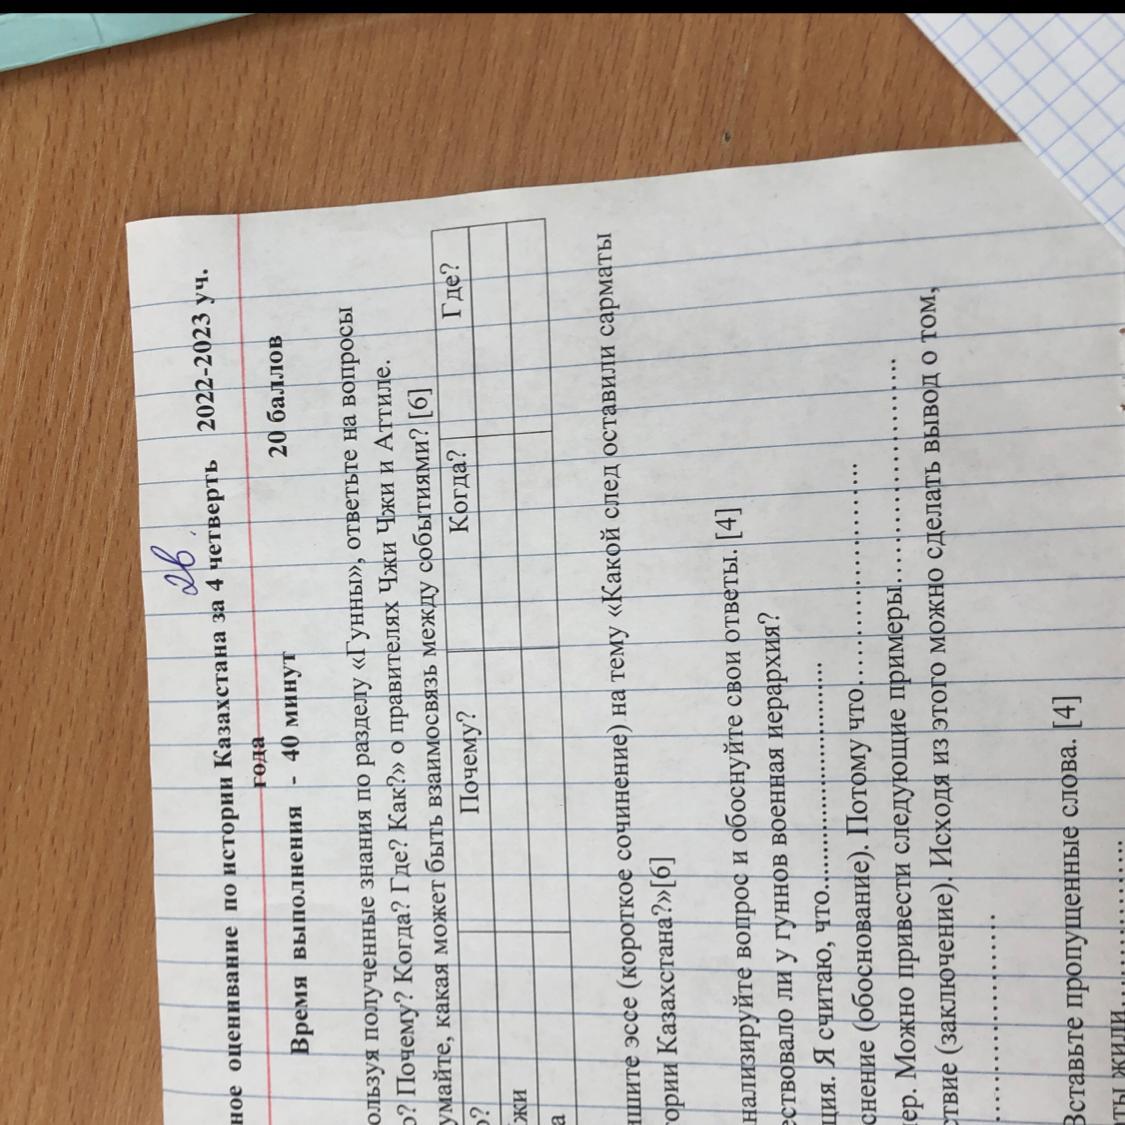 2в.
ное оценивание по истории Казахстана за 4 четверть 2022-2023 уч.
года
Время выполнения - 40 минут 20 баллов
ользуя полученные знания по разделу «Гунны», ответьте на вопросы
о? Почему? Когда? Где? Как?» о правителях Чжи Чжи и Аттиле.
умайте, какая может быть взаимосвязь между событиями? [6]
о? Почему? Когда? Где?
жи
а
ишите эссе (короткое сочинение) на тему «Какой след оставили сарматы
тории Казахстана?»[6]
нализируйте вопрос и обоснуйте свои ответы. [4]
ествовало ли у гуннов военная иерархия?
ция. Я считаю, что.......................................
снение (обоснование). Потому что.......................................
ер. Можно привести следующие примеры.......................................
твие (заключение). Исходя из этого можно сделать вывод о том,
.......................................
Вставьте пропущенные слова. [4]
ты жили.......................................